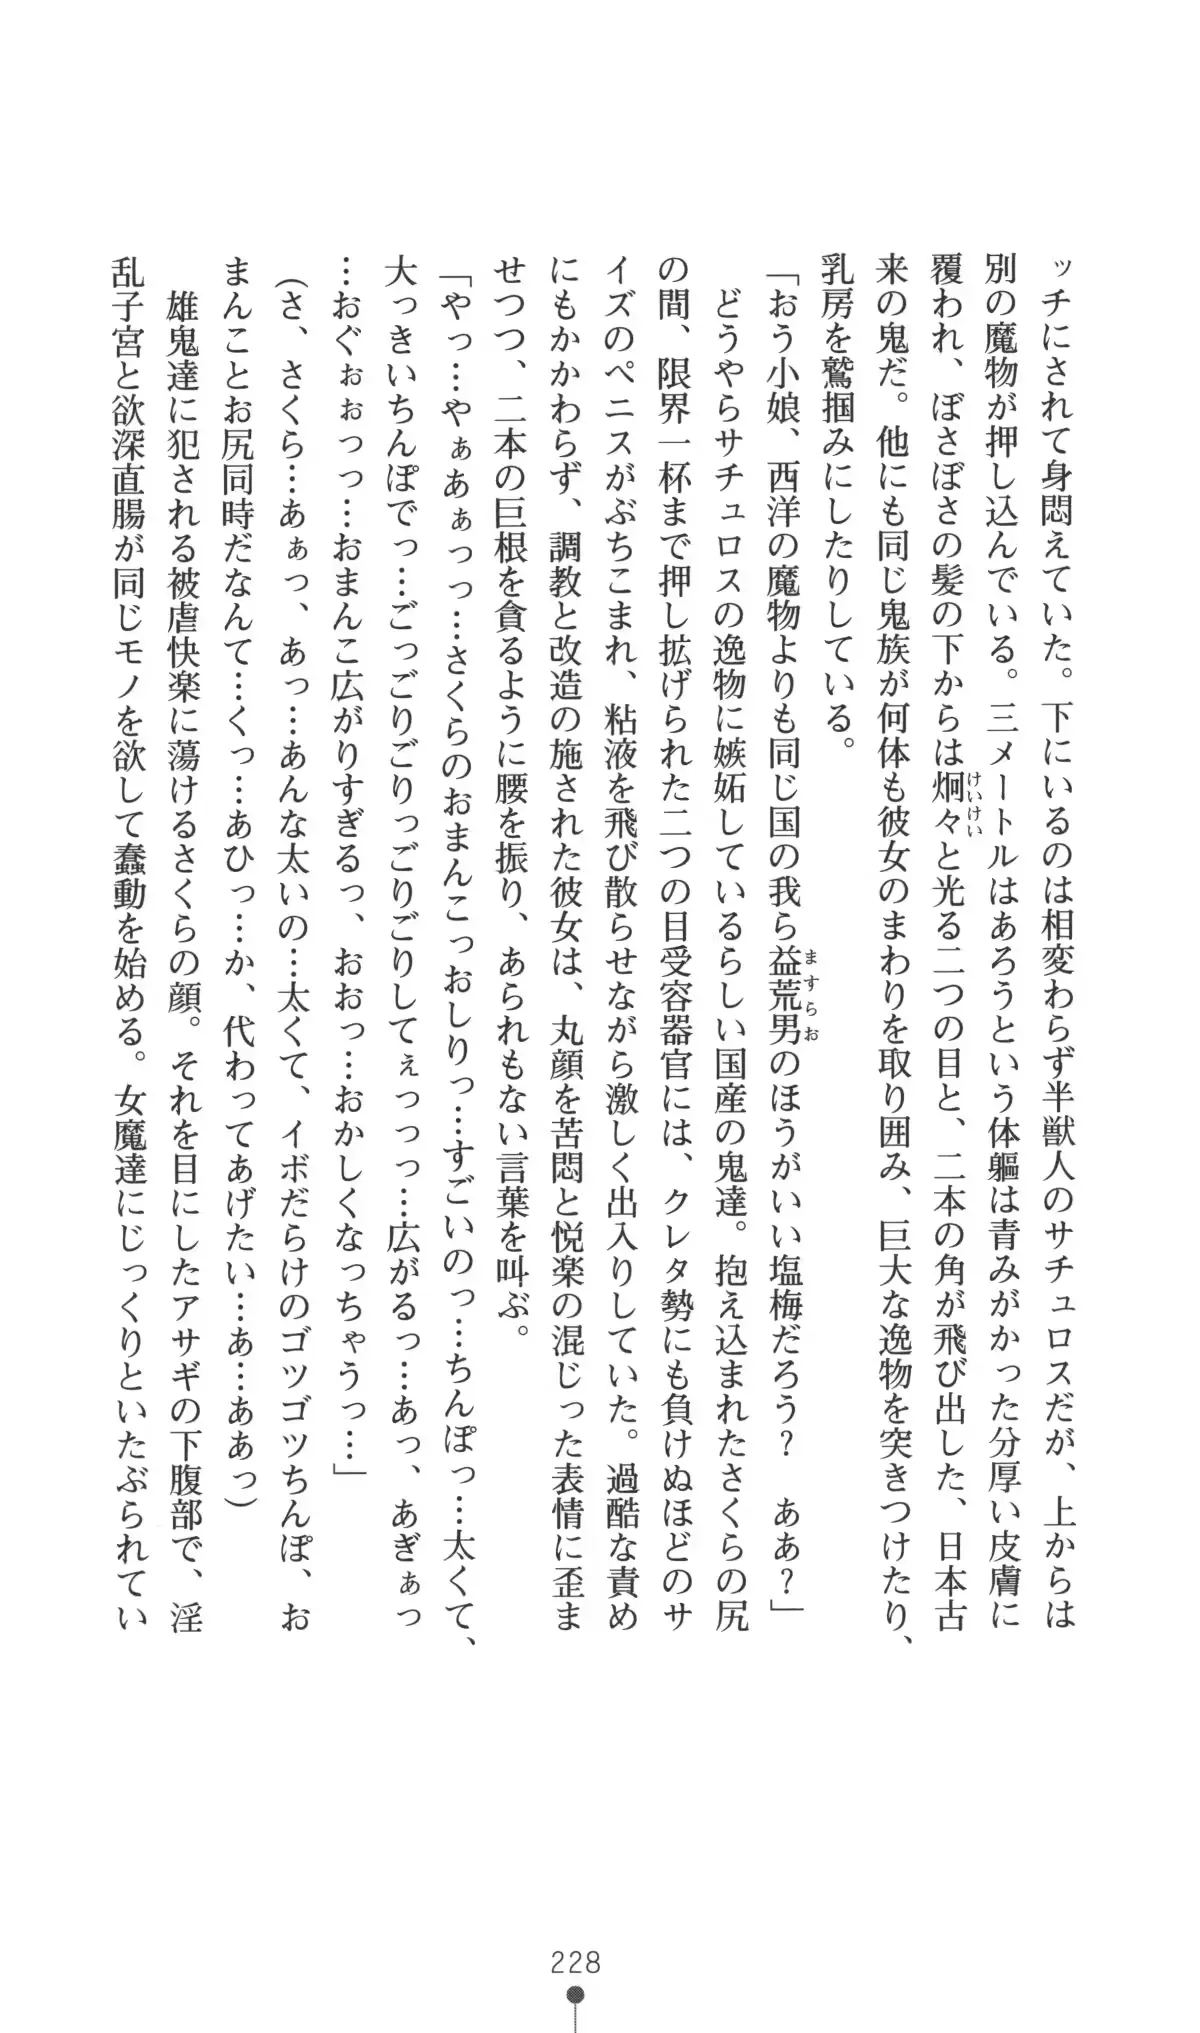 ッチにされて身悶えていた。下にいるのは相変わらず半獣人のサチュロスだが、上からは
別の魔物が押し込んでいる。三メートルはあろうという体軀は青みがかった分厚い皮膚に
覆われ、ぼさぼさの髪の下からは炯々と光る二つの目と、二本の角が飛び出した、日本古
けいけい
来の鬼だ。他にも同じ鬼族が何体も彼女のまわりを取り囲み、巨大な逸物を突きつけたり、
乳房を鷲掴みにしたりしている。
「おう小娘、西洋の魔物よりも同じ国の我ら益荒男のほうがいい塩梅だろう？　ああ？」
ますらお
　どうやらサチュロスの逸物に嫉妬しているらしい国産の鬼達。抱え込まれたさくらの尻
の間、限界一杯まで押し拡げられた二つの目受容器官には、クレタ勢にも負けぬほどのサ
イズのペニスがぶちこまれ、粘液を飛び散らせながら激しく出入りしていた。過酷な責め
にもかかわらず、調教と改造の施された彼女は、丸顔を苦悶と悦楽の混じった表情に歪ま
せつつ、二本の巨根を貪るように腰を振り、あられもない言葉を叫ぶ。
「やっ…やぁあぁっっ…さくらのおまんこっおしりっ…すごいのっ…ちんぽっ…太くて、
大っきいちんぽでっ…ごっごりごりっごりごりしてぇっっっ…広がるっ…あっ、あぎぁっ
…おぐぉぉっっ…おまんこ広がりすぎるっ、おおっ…おかしくなっちゃうっ…」
（さ、さくら…あぁっ、あっ…あんな太いの…太くて、イボだらけのゴツゴツちんぽ、お
まんことお尻同時だなんて…くっ…あひっ…か、代わってあげたい…あ…ああっ）
　雄鬼達に犯される被虐快楽に蕩けるさくらの顔。それを目にしたアサギの下腹部で、淫
乱子宮と欲深直腸が同じモノを欲して蠢動を始める。女魔達にじっくりといたぶられてい
228